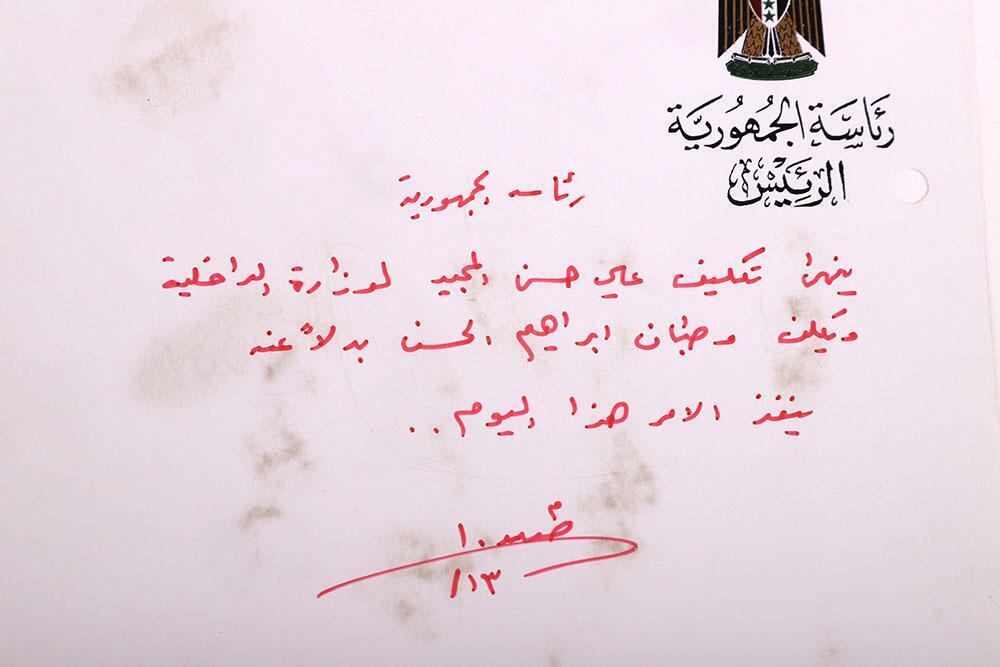 رئاسة الجمهورية
الرئيس
رئاسه الجمهورية
ينهرا تكليف علي حسن المجيد لوزارة الداخلية
ويكلف وطبان ابراهيم الحسن بدلاً عنه
ينفذ الامر هذا اليوم ..
١٣/